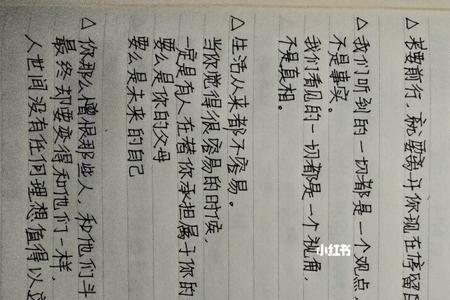 △ 若要前行，就要离开你现在停留
△ 我们听到的一切都是一个观点，
不是事实。
我们看见的一切都是一个视角，
不是真相。
△ 生活从来都不容易。
当你觉得很容易的时候，
一定是有人在替你承担属于你的
要么是你的父母
要么是未来的自己
△ 你那么憎恨那些人，和他们斗
最终却要变得和他们一样，
人世间没有任何理想值得以
小红书